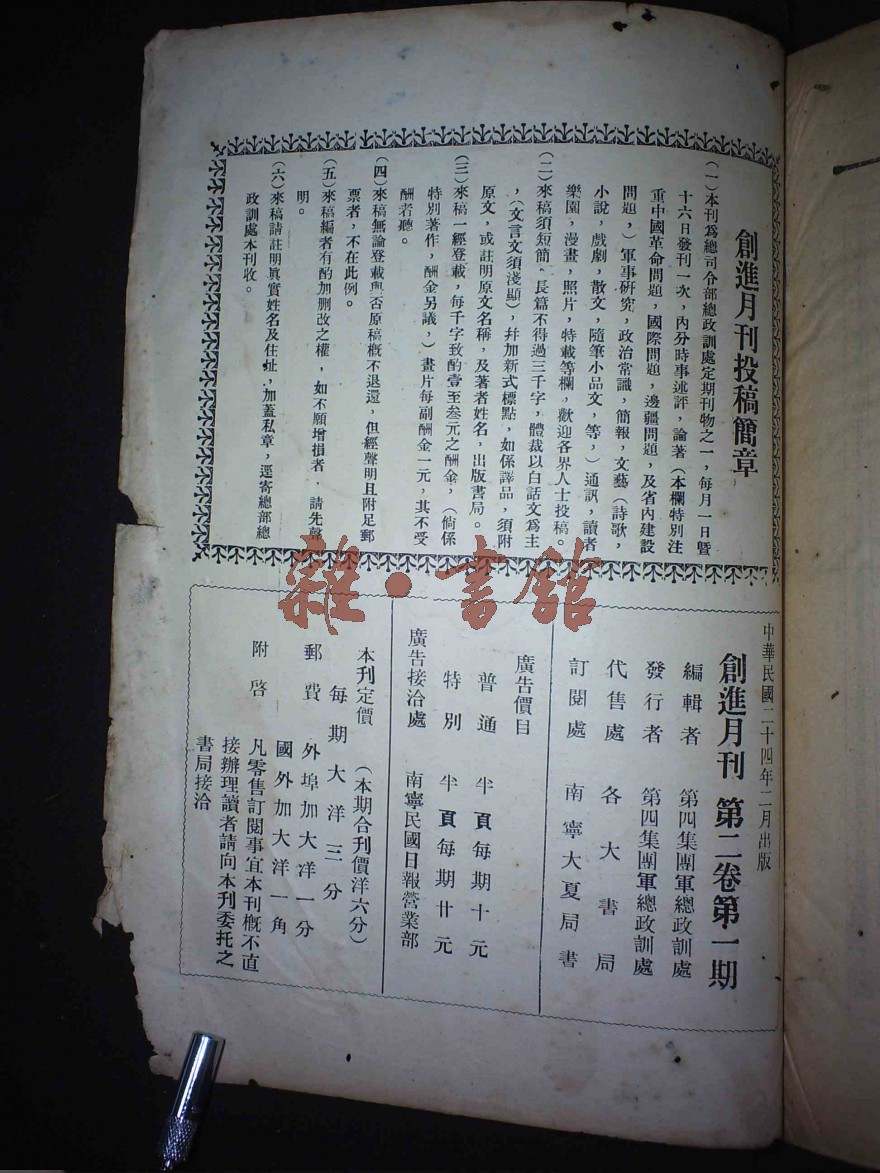 創進月刊投稿簡章
(一)本刊爲總司令部總政訓處定期刊物之一,每月一日暨
十六日發刊一次,內分時事述評,論著(本欄特別注
重中國革命問題,國際問題,邊疆問題,及省內建設
問題,)軍事研究,政治常識,簡報,文藝(詩歌,
小說,戲劇,散文,隨筆小品文,等,)通訊,讀者
樂園,漫畫,照片,特載等欄,歡迎各界人士投稿。
(二)來稿須短簡、長篇不得過三千字,體裁以白話文爲主
,(文言文須淺顯),幷加新式標點,如係譯品,須附
原文,或註明原文名稱,及著者姓名,出版書局。
(三)來稿一經登載,每千字致酌壹至叁元之酬金,(倘係
特別著作,酬金另議,)畫片每副酬金一元,其不受
酬者聽。
(四)來稿無論登載與否原稿槪不退還,但經聲明且附足郵
票者,不在此例。
(五)來稿編者有酌加删改之權,如不願增損者,請先聲
明。
(六)來稿請註明眞實姓名及住址,加蓋私章,逕寄總部總
政訓處本刊收。
雜·書館
中華民國二十四年二月出版
創進月刊 第二卷第一期
編輯者 第四集團軍總政訓處
發行者 第四集團軍總政訓處
代售處 各大書局
訂閱處 南寧大夏局書
廣告價目
普通 半頁每期十元
特別 半頁每期廿元
廣告接洽處 南寧民國日報營業部
本刊定價 (本期合刊價洋六分)
每期大洋三分
郵費 外埠加大洋一分
國外加大洋一角
附啓 凡零售訂閱事宜本刊槪不直
接辦理讀者請向本刊委托之
書局接洽